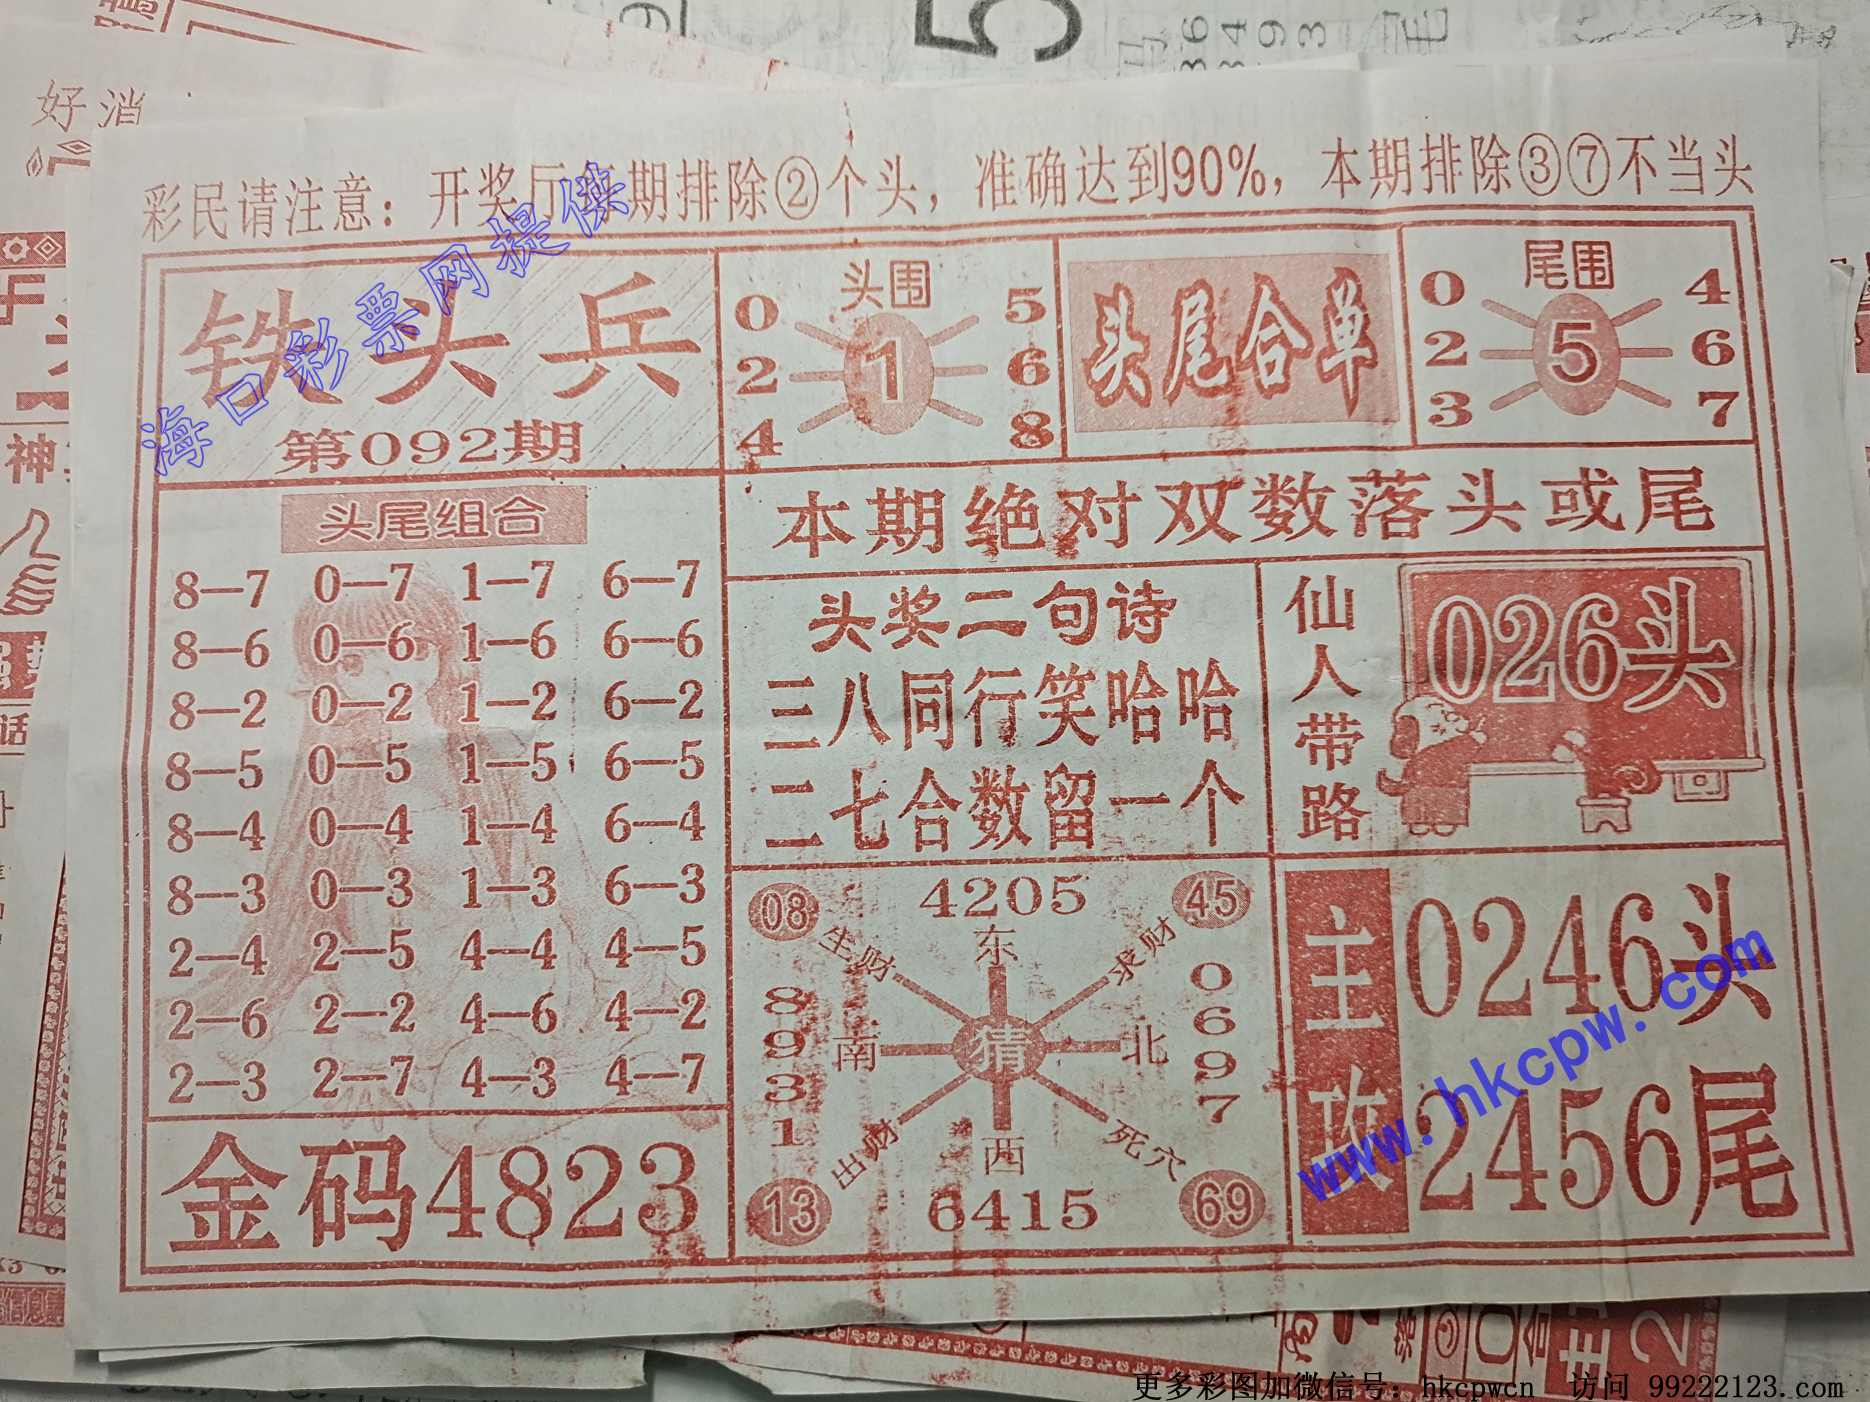 好消
彩民请注意：开奖厅本期排除②个头，准确达到90%，本期排除③⑦不当头
铁头兵
第092期
头围
0 5
2 1 6
4 8
头尾合单
尾围
0 4
2 5 6
3 7
本期绝对双数落头或尾
头尾组合
8—7 0—7 1—7 6—7
8—6 0—6 1—6 6—6
8—2 0—2 1—2 6—2
8—5 0—5 1—5 6—5
8—4 0—4 1—4 6—4
8—3 0—3 1—3 6—3
2—4 2—5 4—4 4—5
2—6 2—2 4—6 4—2
2—3 2—7 4—3 4—7
金码4823
头奖二句诗
三八同行笑哈哈
二七合数留一个
仙人带路
026头
08 4205 45
生财 东 求财
8931 南 猜 北 0697
出财 西 死穴
13 6415 69
主攻
0246头
2456尾
海口彩票网提供
www.hkcpw.com
更多彩图加微信号：hkcpwcn 访问 99222123.com